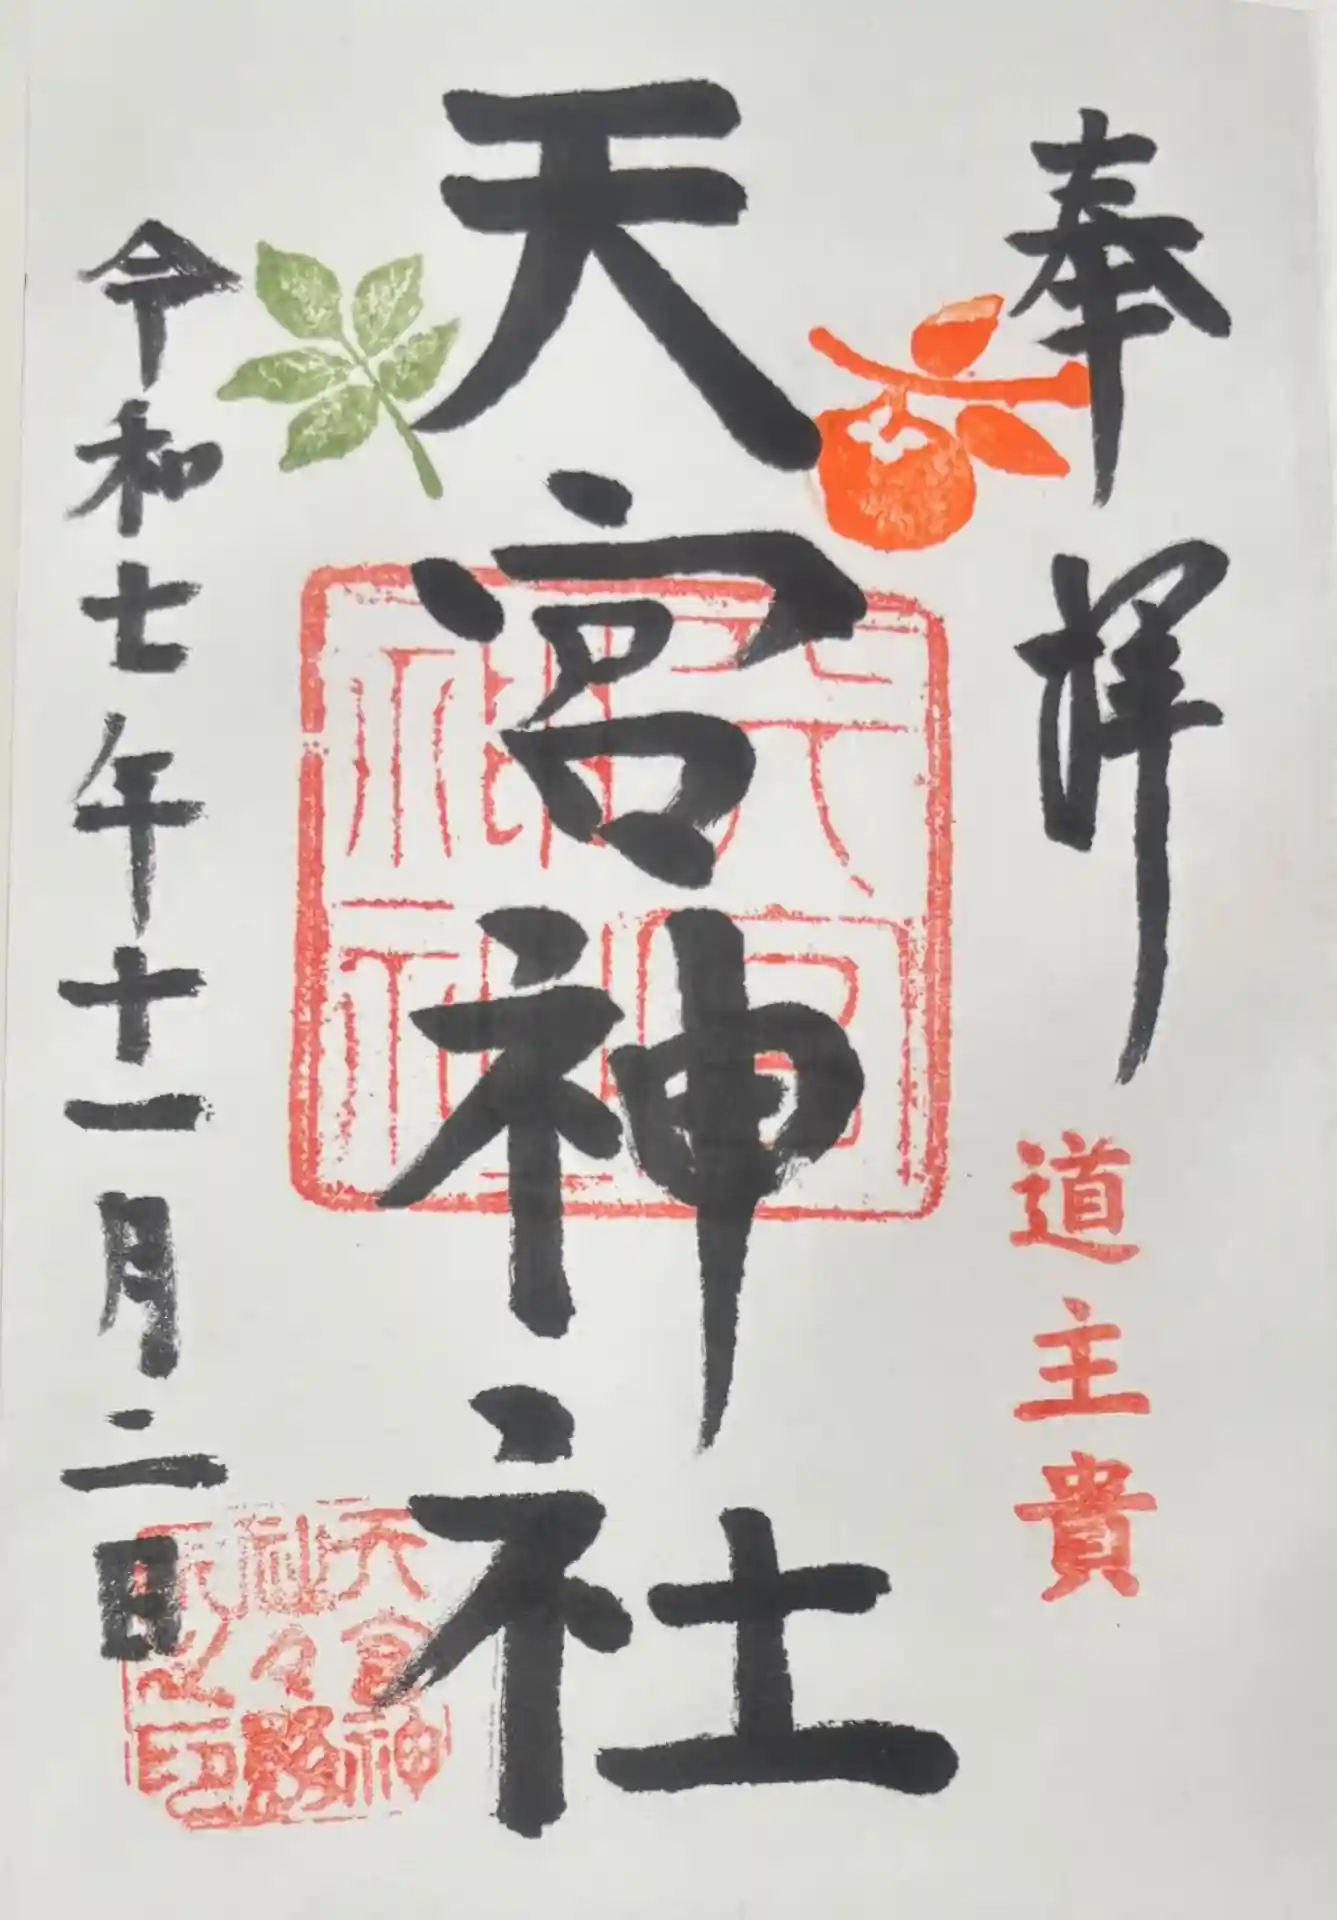 奉拝
道主貴
天宮神社
天宮神社
天宮神社々務所之印
令和七年十一月二日